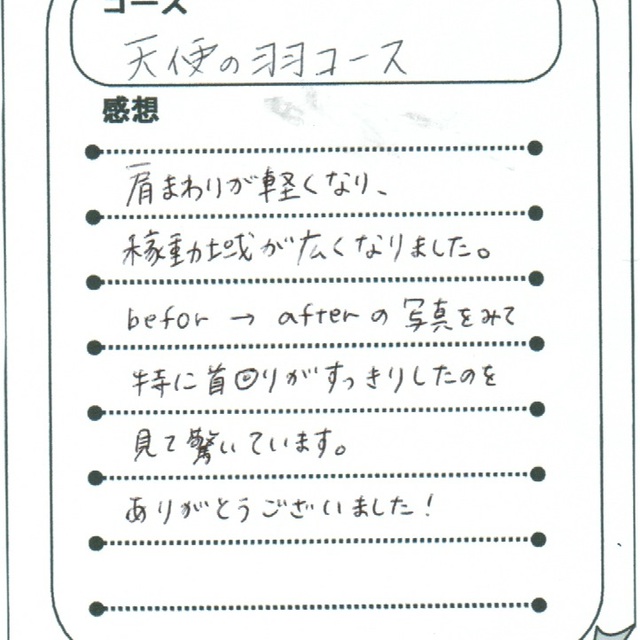 コース
天使の羽コース
感想
肩まわりが軽くなり、
稼動域が広くなりました。
befor → afterの写真をみて
特に首回りがすっきりしたのを
見て驚いています。
ありがとうございました!